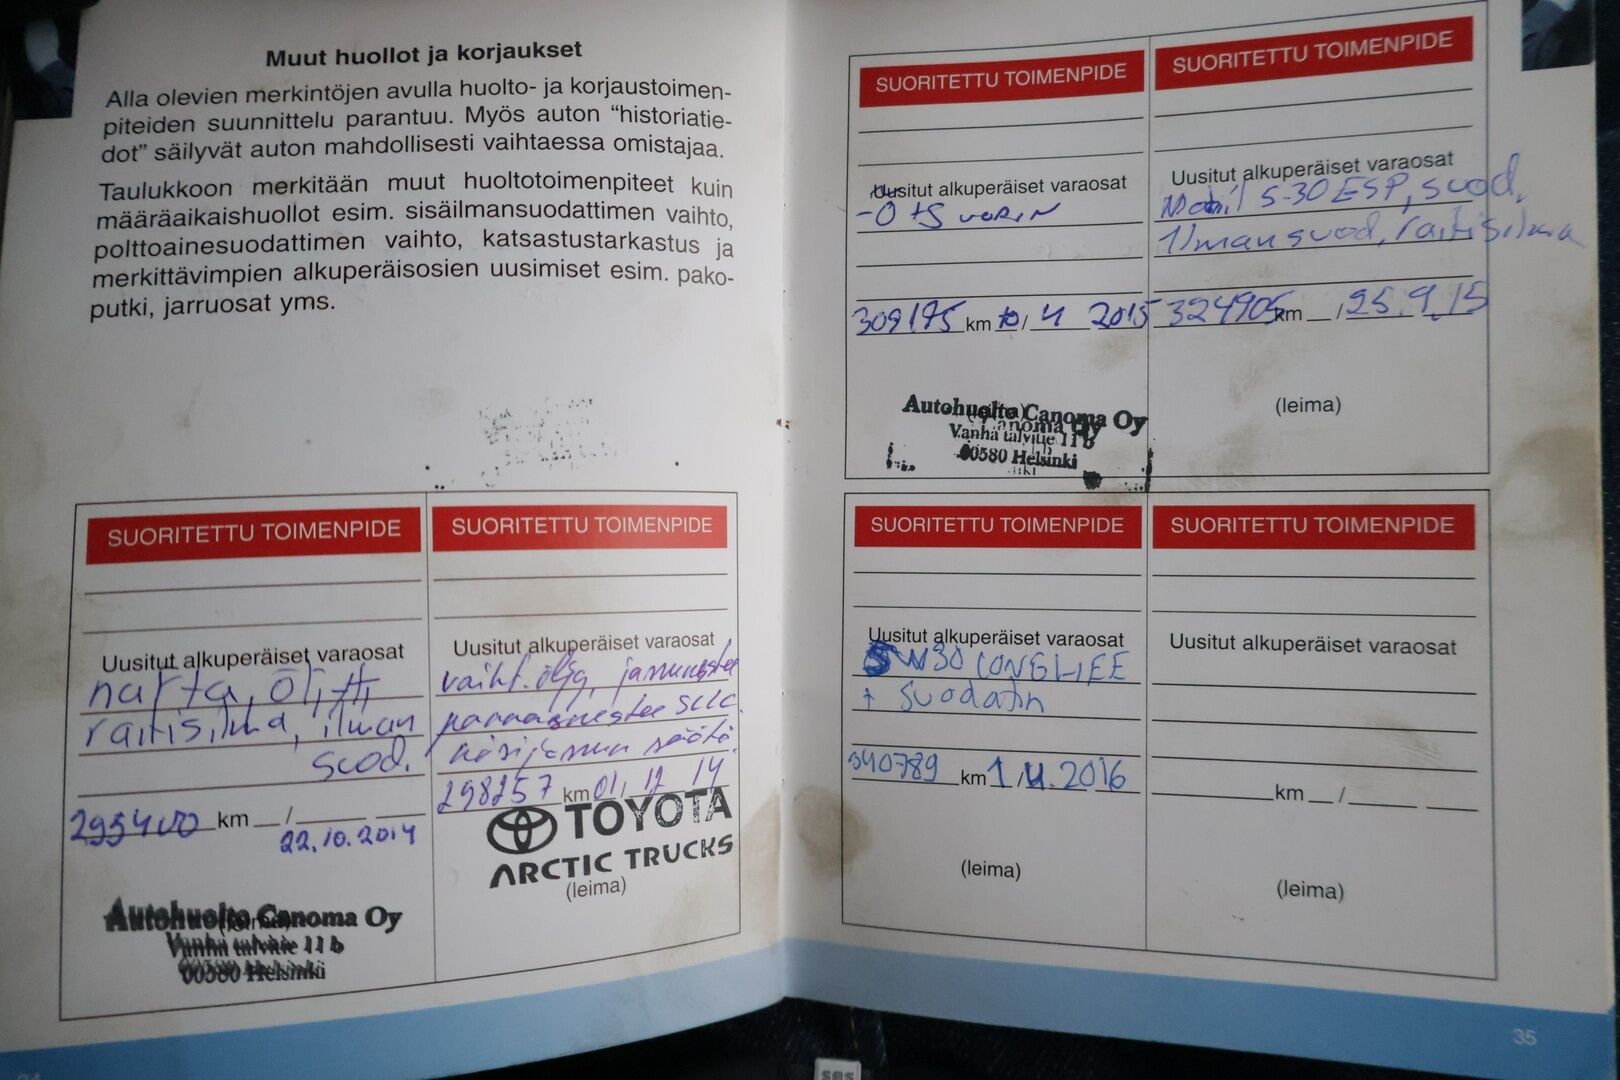 Muut huollot ja korjaukset
Alla olevien merkintöjen avulla huolto- ja korjaustoimen-
piteiden suunnittelu parantuu. Myös auton “historiatie-
dot” säilyvät auton mahdollisesti vaihtaessa omistajaa.
Taulukkoon merkitään muut huoltotoimenpiteet kuin
määräaikaishuollot esim. sisäilmansuodattimen vaihto,
polttoainesuodattimen vaihto, katsastustarkastus ja
merkittävimpien alkuperäisosien uusimiset esim. pako-
putki, jarruosat yms.
SUORITETTU TOIMENPIDE
Uusitut alkuperäiset varaosat
raitisilma, ilman
suod.
293400 km __/
22.10.2014
Autohuolto Canoma Oy
Vanha talvitie 11 b
00580 Helsinki
SUORITETTU TOIMENPIDE
Uusitut alkuperäiset varaosat
vaiht. öljy, jarruneste
käsijarrun säätö
298257 km 01, 12 14
TOYOTA
ARCTIC TRUCKS
(leima)
SUORITETTU TOIMENPIDE
Uusitut alkuperäiset varaosat
309175 km 10/ 4 2015
Autohuolto Canoma Oy
Vanha talvitie 11 b
00580 Helsinki
SUORITETTU TOIMENPIDE
Uusitut alkuperäiset varaosat
Mobil 5-30 ESP, suod,
Ilman suod, raitisilma
324905 km __/25.9.15
(leima)
SUORITETTU TOIMENPIDE
Uusitut alkuperäiset varaosat
5W30
+ suodatin
340789 km 1/4.2016
(leima)
SUORITETTU TOIMENPIDE
Uusitut alkuperäiset varaosat
km __/
(leima)
35